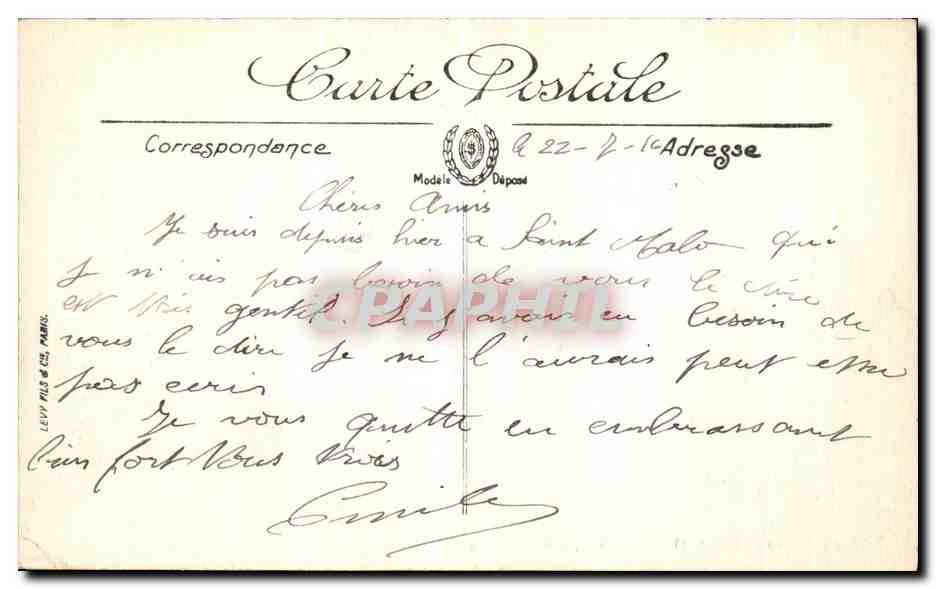 Carte Postale
Correspondance
le 22-7-16 Adresse
Modèle Déposé
Chers Amis
Je suis depuis hier a Saint Malo qui
je n'ais pas besoin de vous le dire
est très gentil. Si j'avais eu besoin de
vous le dire je ne l'aurais peut etre
pas ecris
Je vous quitte en embrassant
bien fort Vous trois
Emile
LEVY FILS & Cie, PARIS.
CPAPHIL